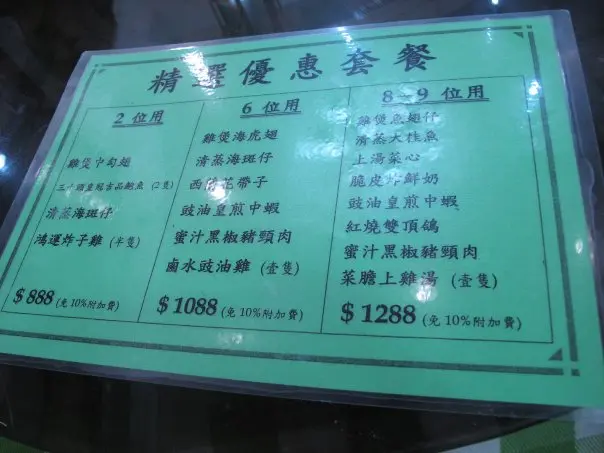 精選優惠套餐
2 位用
雞煲中勾翅
三十頭皇冠吉品鮑魚 (2隻)
清蒸海斑仔
鴻運炸子雞 (半隻)
$ 888 (免10%附加費)
6 位用
雞煲海虎翅
清蒸海斑仔
西蘭花帶子
豉油皇煎中蝦
蜜汁黑椒豬頸肉
鹵水豉油雞 (壹隻)
$ 1088 (免10%附加費)
8~9 位用
雞煲魚翅仔
清蒸大桂魚
上湯菜心
脆皮炸鮮奶
豉油皇煎中蝦
紅燒雙頂鴿
蜜汁黑椒豬頸肉
菜膽上雞湯 (壹隻)
$ 1288 (免10%附加費)